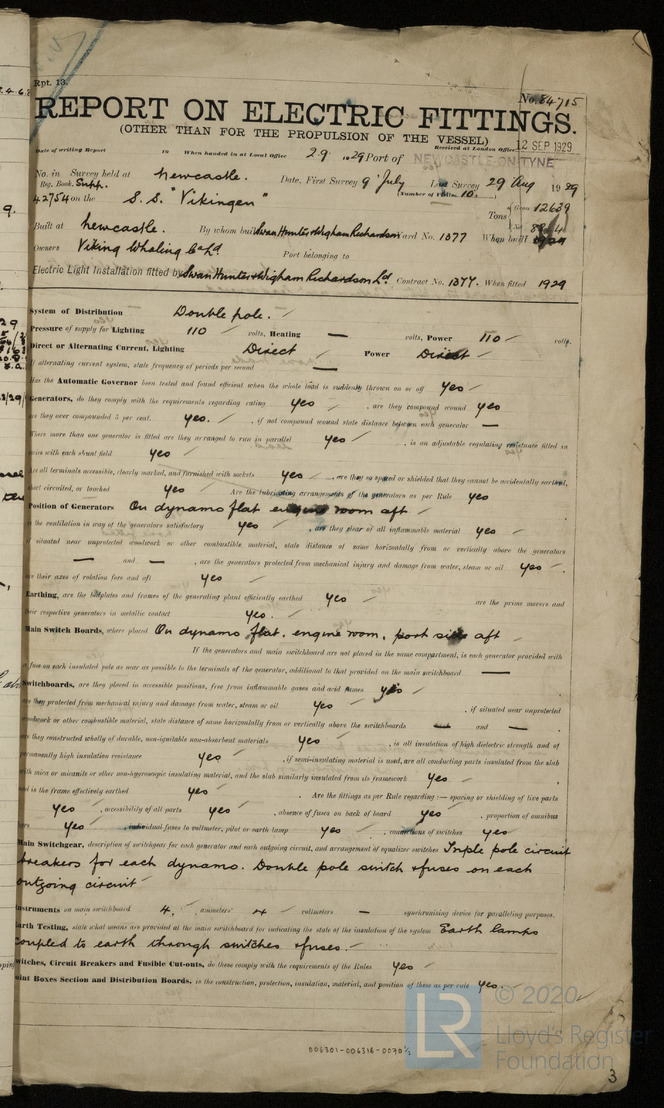 Rpt. 13.
No. 84715
REPORT ON ELECTRIC FITTINGS.
(OTHER THAN FOR THE PROPULSION OF THE VESSEL)
Received at London Office 12 SEP 1929
Date of writing Report 19 When handed in at Local Office 2.9. 1929 Port of NEWCASTLE-ON-TYNE
No. in Survey held at Newcastle. Date, First Survey 9 July Last Survey 29 Aug 1929
Reg. Book. Supp. (Number of Visits 10.)
42754 on the S.S. "Vikingen" Tons Gross 12639
Net
Built at Newcastle. By whom built Swan Hunter & Wigham Richardson Yard No. 1377 When built
Owners Viking Whaling Co Ld Port belonging to
Electric Light Installation fitted by Swan Hunter & Wigham Richardson Ld. Contract No. 1377. When fitted 1929
System of Distribution Double pole.
Pressure of supply for Lighting 110 volts, Heating — volts, Power 110 volts.
Direct or Alternating Current, Lighting Direct Power Direct
If alternating current system, state frequency of periods per second —
Has the Automatic Governor been tested and found efficient when the whole load is suddenly thrown on or off Yes
Generators, do they comply with the requirements regarding rating Yes , are they compound wound Yes
are they over compounded 5 per cent. Yes. , if not compound wound state distance between each generator —
Where more than one generator is fitted are they arranged to run in parallel Yes , is an adjustable regulating resistance fitted in
series with each shunt field Yes
Are all terminals accessible, clearly marked, and furnished with sockets Yes , are they so spaced or shielded that they cannot be accidentally earthed,
short circuited, or touched Yes Are the lubricating arrangements of the generators as per Rule Yes
Position of Generators On dynamo flat engine room aft
is the ventilation in way of the generators satisfactory Yes , are they clear of all inflammable material Yes
if situated near unprotected woodwork or other combustible material, state distance of same horizontally from or vertically above the generators
— and — , are the generators protected from mechanical injury and damage from water, steam or oil Yes
are their axes of rotation fore and aft Yes
Earthing, are the bedplates and frames of the generating plant efficiently earthed Yes are the prime movers and
their respective generators in metallic contact Yes.
Main Switch Boards, where placed On dynamo flat. engine room, port side aft
If the generators and main switchboard are not placed in the same compartment, is each generator provided with
a fuse on each insulated pole as near as possible to the terminals of the generator, additional to that provided on the main switchboard —
Switchboards, are they placed in accessible positions, free from inflammable gases and acid fumes Yes
are they protected from mechanical injury and damage from water, steam or oil Yes , if situated near unprotected
woodwork or other combustible material, state distance of same horizontally from or vertically above the switchboards — and —
are they constructed wholly of durable, non-ignitable non-absorbent materials Yes , is all insulation of high dielectric strength and of
permanently high insulation resistance Yes , if semi-insulating material is used, are all conducting parts insulated from the slab
with mica or micanite or other non-hygroscopic insulating material, and the slab similarly insulated from its framework Yes
and is the frame effectively earthed Yes . Are the fittings as per Rule regarding:— spacing or shielding of live parts
Yes , accessibility of all parts Yes , absence of fuses on back of board Yes , proportion of omnibus
bars Yes , individual fuses to voltmeter, pilot or earth lamp Yes , connections of switches Yes
Main Switchgear, description of switchgear for each generator and each outgoing circuit, and arrangement of equalizer switches Triple pole circuit
breakers for each dynamo. Double pole switch & fuses on each
outgoing circuit
Instruments on main switchboard 4. ammeters 4 voltmeters — synchronising device for paralleling purposes.
Earth Testing, state what means are provided at the main switchboard for indicating the state of the insulation of the system Earth Lamps
coupled to earth through switches & fuses.
Switches, Circuit Breakers and Fusible Cut-outs, do these comply with the requirements of the Rules Yes
Joint Boxes Section and Distribution Boards, is the construction, protection, insulation, material, and position of these as per rule Yes.
© 2020
LR Lloyd's Register
Foundation
006301-006316-0070 1/2
3